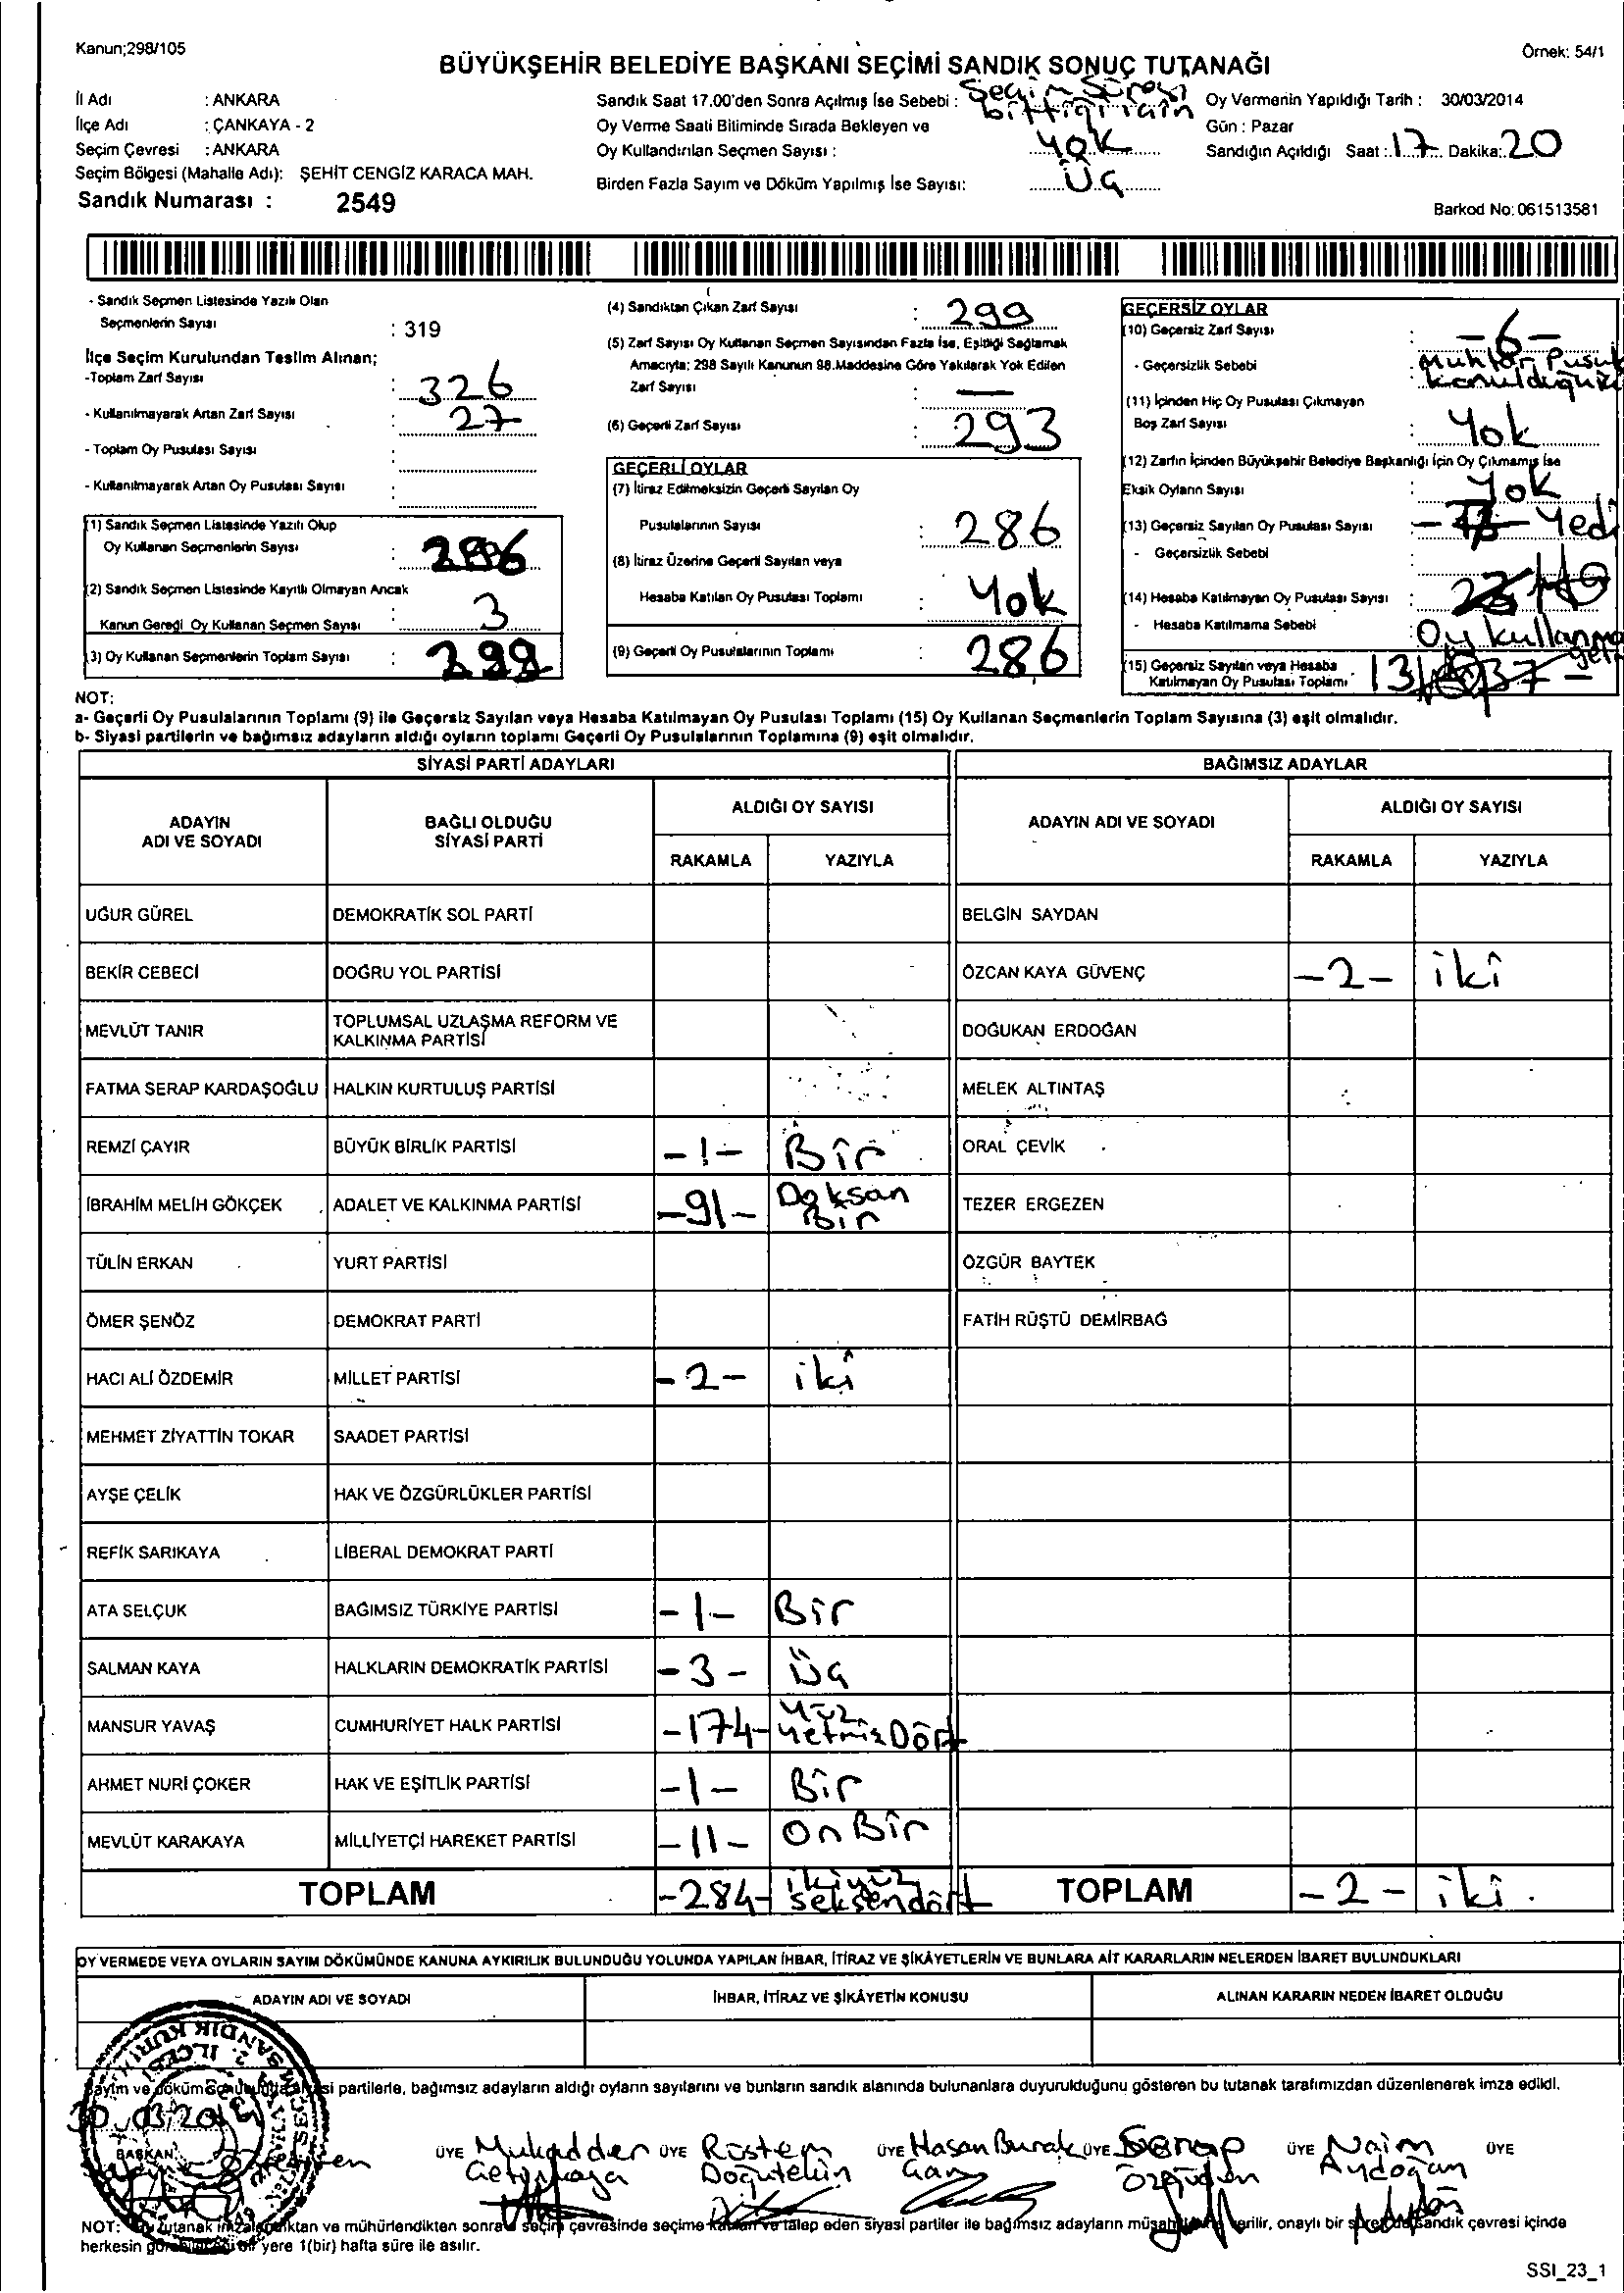 Kanun;298/105
Örnek: 54/1
BÜYÜKŞEHİR BELEDİYE BAŞKANI SEÇİMİ SANDIK SONUÇ TUTANAĞI
İl Adı : ANKARA
İlçe Adı : ÇANKAYA - 2
Seçim Çevresi : ANKARA
Seçim Bölgesi (Mahalle Adı): ŞEHİT CENGİZ KARACA MAH.
Sandık Numarası : 2549
Sandık Saat 17.00'den Sonra Açılmış İse Sebebi : Seçim Süresi
bittiği için
Oy Verme Saati Bitiminde Sırada Bekleyen ve
Oy Kullandırılan Seçmen Sayısı : Yok
Birden Fazla Sayım ve Döküm Yapılmış İse Sayısı: Üç
Oy Vermenin Yapıldığı Tarih : 30/03/2014
Gün : Pazar
Sandığın Açıldığı Saat : 17 Dakika: 20
Barkod No: 061513581
- Sandık Seçmen Listesinde Yazılı Olan
Seçmenlerin Sayısı : 319
İlçe Seçim Kurulundan Teslim Alınan;
-Toplam Zarf Sayısı : 326
- Kullanılmayarak Artan Zarf Sayısı : 27
- Toplam Oy Pusulası Sayısı :
- Kullanılmayarak Artan Oy Pusulası Sayısı :
(1) Sandık Seçmen Listesinde Yazılı Olup
Oy Kullanan Seçmenlerin Sayısı :
(2) Sandık Seçmen Listesinde Kayıtlı Olmayan Ancak
Kanun Geregi Oy Kullanan Seçmen Sayısı : 3
(3) Oy Kullanan Seçmenlerin Toplam Sayısı : 299
(4) Sandıktan Çıkan Zarf Sayısı : 299
(5) Zarf Sayısı Oy Kullanan Seçmen Sayısından Fazla İse, Eşitliği Sağlamak
Amacıyla: 298 Sayılı Kanunun 98.Maddesine Göre Yakılarak Yok Edilen
Zarf Sayısı : —
(6) Geçerli Zarf Sayısı : 293
GEÇERLİ OYLAR
(7) İtiraz Edilmeksizin Geçerli Sayılan Oy
Pusulalarının Sayısı : 286
(8) İtiraz Üzerine Geçerli Sayılan veya
Hesaba Katılan Oy Pusulası Toplamı : Yok
(9) Geçerli Oy Pusulalarının Toplamı : 286
GEÇERSİZ OYLAR
(10) Geçersiz Zarf Sayısı : -6-
- Geçersizlik Sebebi : Muhtar Pusul
konulduğun
(11) İçinden Hiç Oy Pusulası Çıkmayan
Boş Zarf Sayısı : Yok
(12) Zarfın İçinden Büyükşehir Belediye Başkanlığı İçin Oy Çıkmamış İse
Eksik Oyların Sayısı : Yok
(13) Geçersiz Sayılan Oy Pusulası Sayısı : Yedi
- Geçersizlik Sebebi :
(14) Hesaba Katılmayan Oy Pusulası Sayısı :
- Hesaba Katılmama Sebebi : Oy kullanma
(15) Geçersiz Sayılan veya Hesaba
Katılmayan Oy Pusulası Toplamı : 13
NOT:
a- Geçerli Oy Pusulalarının Toplamı (9) ile Geçersiz Sayılan veya Hesaba Katılmayan Oy Pusulası Toplamı (15) Oy Kullanan Seçmenlerin Toplam Sayısına (3) eşit olmalıdır.
b- Siyasi partilerin ve bağımsız adayların aldığı oyların toplamı Geçerli Oy Pusulalarının Toplamına (9) eşit olmalıdır.
SİYASİ PARTİ ADAYLARI BAĞIMSIZ ADAYLAR
ADAYIN ADI VE SOYADI BAĞLI OLDUĞU SİYASİ PARTİ ALDIĞI OY SAYISI ADAYIN ADI VE SOYADI ALDIĞI OY SAYISI
RAKAMLA YAZIYLA RAKAMLA YAZIYLA
UĞUR GÜREL DEMOKRATİK SOL PARTİ BELGİN SAYDAN
BEKİR CEBECİ DOĞRU YOL PARTİSİ ÖZCAN KAYA GÜVENÇ -2- iki
MEVLÜT TANIR TOPLUMSAL UZLAŞMA REFORM VE KALKINMA PARTİSİ DOĞUKAN ERDOĞAN
FATMA SERAP KARDAŞOĞLU HALKIN KURTULUŞ PARTİSİ MELEK ALTINTAŞ
REMZİ ÇAYIR BÜYÜK BİRLİK PARTİSİ -1- Bir ORAL ÇEVİK
İBRAHİM MELİH GÖKÇEK ADALET VE KALKINMA PARTİSİ -91- Doksan Bir TEZER ERGEZEN
TÜLİN ERKAN YURT PARTİSİ ÖZGÜR BAYTEK
ÖMER ŞENÖZ DEMOKRAT PARTİ FATİH RÜŞTÜ DEMİRBAĞ
HACI ALİ ÖZDEMİR MİLLET PARTİSİ -2- iki
MEHMET ZİYATTİN TOKAR SAADET PARTİSİ
AYŞE ÇELİK HAK VE ÖZGÜRLÜKLER PARTİSİ
REFİK SARIKAYA LİBERAL DEMOKRAT PARTİ
ATA SELÇUK BAĞIMSIZ TÜRKİYE PARTİSİ -1- Bir
SALMAN KAYA HALKLARIN DEMOKRATİK PARTİSİ -3- Üç
MANSUR YAVAŞ CUMHURİYET HALK PARTİSİ -174- Yüz Yetmiş Dört
AHMET NURİ ÇOKER HAK VE EŞİTLİK PARTİSİ -1- Bir
MEVLÜT KARAKAYA MİLLİYETÇİ HAREKET PARTİSİ -11- On Bir
TOPLAM -284- ikiyüz seksendört TOPLAM -2- iki.
OY VERMEDE VEYA OYLARIN SAYIM DÖKÜMÜNDE KANUNA AYKIRILIK BULUNDUĞU YOLUNDA YAPILAN İHBAR, İTİRAZ VE ŞİKÂYETLERİN VE BUNLARA AİT KARARLARIN NELERDEN İBARET BULUNDUKLARI
ADAYIN ADI VE SOYADI İHBAR, İTİRAZ VE ŞİKÂYETİN KONUSU ALINAN KARARIN NEDEN İBARET OLDUĞU
Sayım ve döküm partilerle, bağımsız adayların aldığı oyların sayılarını ve bunların sandık alanında bulunanlara duyurulduğunu gösteren bu tutanak tarafımızdan düzenlenerek imza edildi.
BAŞKAN ÜYE Mukadder ÜYE Rüstem ÜYE Hasan Burak ÜYE Serap ÜYE Naim ÜYE
Çetinkaya Doğutekin Aydoğan
NOT: tutanak imzalandıktan ve mühürlendikten sonra seçim çevresinde seçime katılan ve talep eden siyasi partiler ile bağımsız adayların verilir, onaylı bir sandık çevresi içinde
herkesin bir yere 1(bir) hafta süre ile asılır.
SSI_23_1